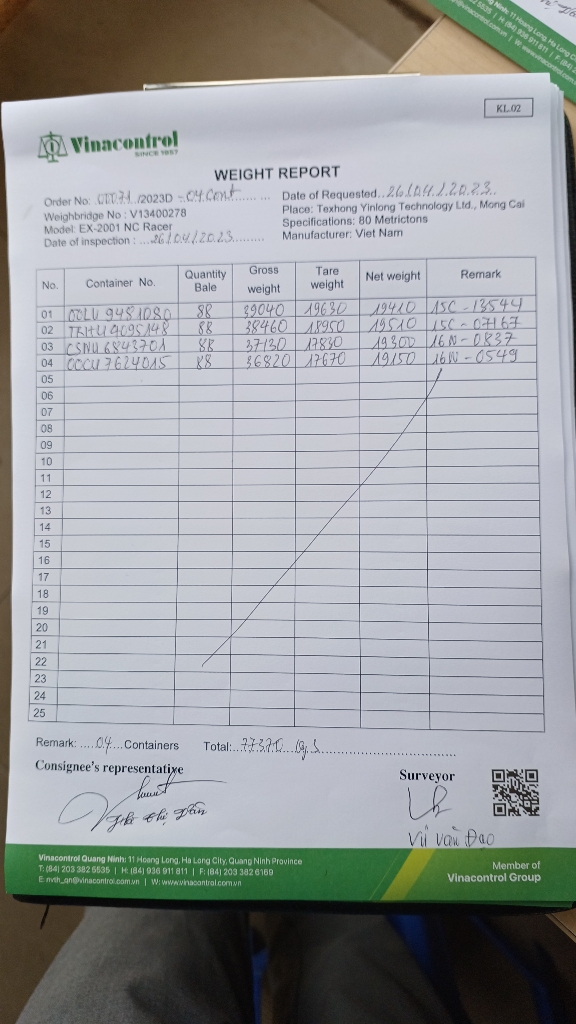 KL.02
Vinacontrol
SINCE 1957
WEIGHT REPORT
Order No: 00071 /2023D - 04 Cont
Date of Requested 26/04/2023
Weighbridge No : V13400278
Place: Texhong Yinlong Technology Ltd., Mong Cai
Model: EX-2001 NC Racer
Specifications: 80 Metrictons
Date of inspection : 26/04/2023
Manufacturer: Viet Nam
No. Container No. Quantity Bale Gross weight Tare weight Net weight Remark
01 OOLU 9481080 88 39040 19630 19410 15C - 13544
02 9095148 88 38460 18950 19510 15C - 07167
03 CSNU 6843701 88 37130 17830 19300 16N - 0837
04 OOCU 7624015 88 36820 17670 19150 16N - 0549
05
06
07
08
09
10
11
12
13
14
15
16
17
18
19
20
21
22
23
24
25
Remark: 04 Containers Total: 77370 kgs
Consignee's representative
Surveyor
Vũ Văn Đạo
Vinacontrol Quang Ninh: 11 Hoang Long, Ha Long City, Quang Ninh Province
T: (84) 203 382 5535 | H: (84) 936 911 811 | F: (84) 203 382 6169
E: nvth_qn@vinacontrol.com.vn | W: www.vinacontrol.com.vn
Member of
Vinacontrol Group